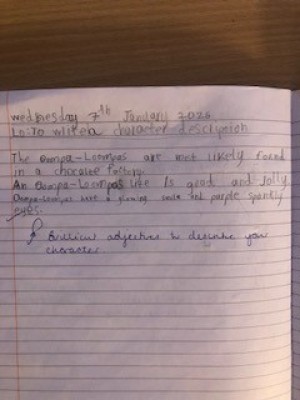 wednesday 7th January 2026
Lo: To write a character description
The Oompa-Loompas are most likely found
in a chocolate factory.
An Oompa-Loompas life is good and jolly
Oompa-Loompas have a gleaming smile and purple sparkly
eyes.
Brilliant adjectives to describe your
character